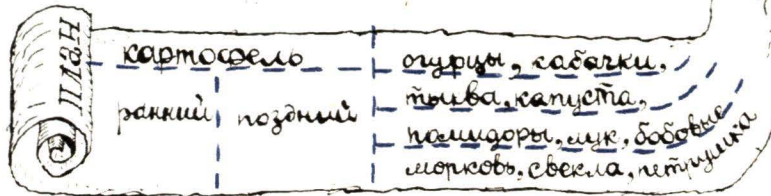 план
картофель
ранний поздний
огурцы, кабачки,
тыква, капуста,
помидоры, лук, бобовые
морковь, свекла, петрушка